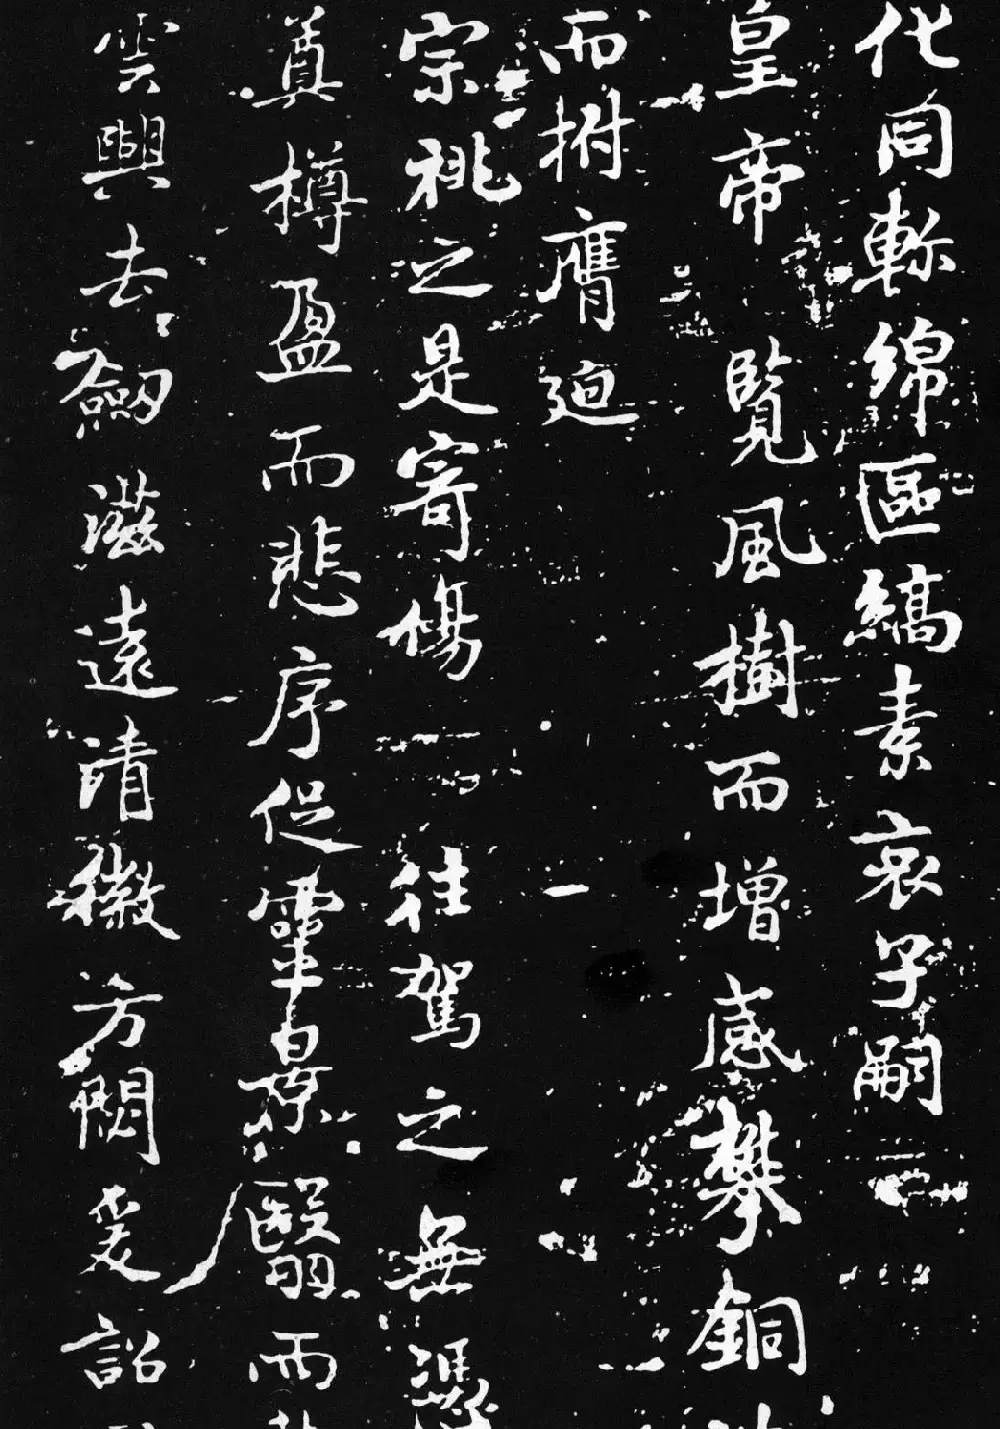 化同軫綿區縞素哀子嗣
皇帝覽風樹而增感攀銅
而拊膺迴
宗祧之是寄傷往駕之無憑
奠樽盈而悲序促靈景翳而
雲輿去劒滋遠清徽方閟爰詔